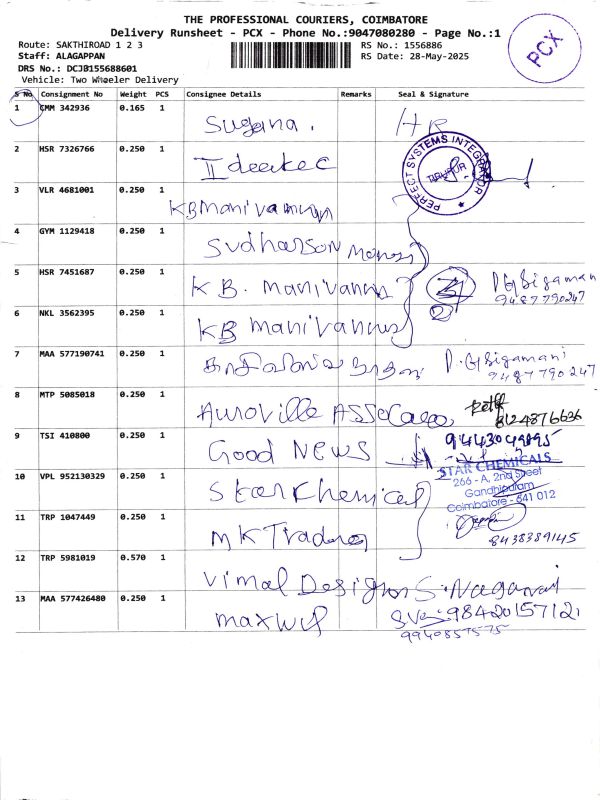 THE PROFESSIONAL COURIERS, COIMBATORE
Delivery Runsheet - PCX - Phone No.:9047080280 - Page No.:1
Route: SAKTHIROAD 1 2 3
RS No.: 1556886
Staff: ALAGAPPAN
RS Date: 28-May-2025
DRS No.: DCJB155688601
Vehicle: Two Wheeler Delivery
PCX
S No Consignment No Weight PCS Consignee Details Remarks Seal & Signature
1 CMM 342936 0.165 1 Sugana. HR
2 HSR 7326766 0.250 1
PERFECT SYSTEMS INTEGRATOR
TIRUPUR
3 VLR 4681001 0.250 1 KB Manivannan
4 GYM 1129418 0.250 1 Sudharson
5 HSR 7451687 0.250 1 KB. Manivannan
9487790247
6 NKL 3562395 0.250 1 KB Manivannan
7 MAA 577190741 0.250 1 D. Gsigamani
9487790247
8 MTP 5085018 0.250 1 Auroville
8124876636
9 TSI 410800 0.250 1 Good News
9443049895
10 VPL 952130329 0.250 1 Star Chemical
STAR CHEMICALS
266 - A, 2nd Street
Gandhipuram
Coimbatore - 641 012
11 TRP 1047449 0.250 1 MK Traders
8438389145
12 TRP 5981019 0.570 1 Vimal Design S. Naganai
13 MAA 577426480 0.250 1 9842015712
9940857575